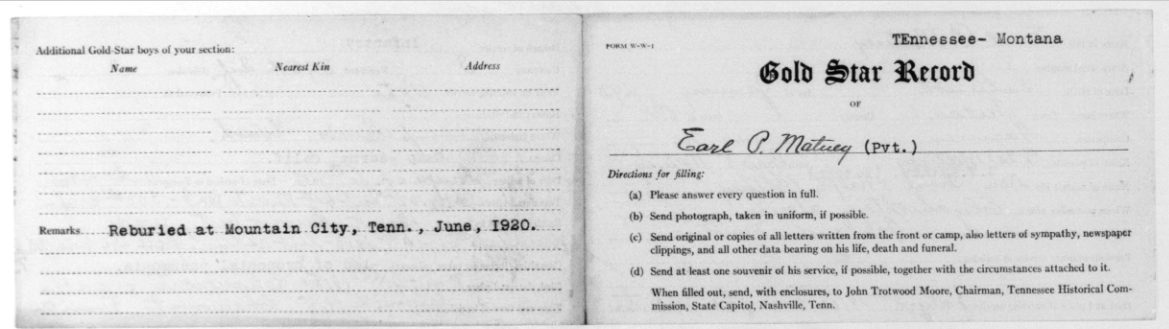 Additional Gold-Star boys of your section:
Name Nearest Kin Address
Remarks Reburied at Mountain City, Tenn., June, 1920.
FORM W-W-1
TEnnessee- Montana
Gold Star Record
OF
Earl P. Matney (Pvt.)
Directions for filling:
(a) Please answer every question in full.
(b) Send photograph, taken in uniform, if possible.
(c) Send original or copies of all letters written from the front or camp, also letters of sympathy, newspaper
clippings, and all other data bearing on his life, death and funeral.
(d) Send at least one souvenir of his service, if possible, together with the circumstances attached to it.
When filled out, send, with enclosures, to John Trotwood Moore, Chairman, Tennessee Historical Com-
mission, State Capitol, Nashville, Tenn.